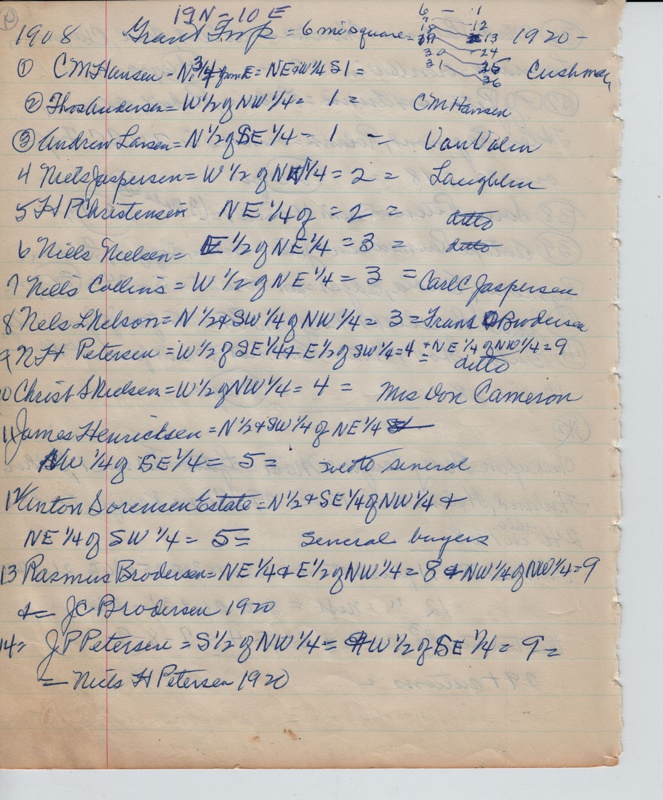 19N=10E
1908 Grant Twp = 6 mi square = 1920-
6 - 1
7 12
18 13
19 24
30 25
31 36
① CM Hansen = N 3/4 from E = NE SW 1/4 S1 = Cushman
② Thos Andersen = W 1/2 of NW 1/4 = 1 = CM Hansen
③ Andrew Larsen = N 1/2 of SE 1/4 = 1 - VanValin
4 Niels Jaspersen = W 1/2 of NW 1/4 = 2 = Laughlin
5 H P Christensen NE 1/4 of = 2 = ditto
6 Niels Nielsen = E 1/2 of NE 1/4 = 3 = ditto
7 Niels Collins = W 1/2 of NE 1/4 = 3 = Carl C Jaspersen
8 Nels L Nelson = N 1/2 & SW 1/4 of NW 1/4 = 3 = Frans Brodersen
9 N H Petersen = W 1/2 of SE 1/4 + E 1/2 of SW 1/4 = 4 + NE 1/4 of NW 1/4 = 9
= ditto
10 Christ S Nielsen = W 1/2 of NW 1/4 = 4 = Mrs Don Cameron
11 James Henricksen = N 1/2 + SW 1/4 of NE 1/4 &
NW 1/4 of SE 1/4 = 5 = several
12 Anton Sorensen Estate = N 1/2 & SE 1/4 of NW 1/4 &
NE 1/4 of SW 1/4 = 5 = several buyers
13 Rasmus Brodersen = NE 1/4 & E 1/2 of NW 1/4 = 8 & NW 1/4 of NW 1/4 = 9
= J C Brodersen 1920
14 = J P Petersen = S 1/2 of NW 1/4 = & W 1/2 of SE 1/4 = 9 =
= Niels H Petersen 1920